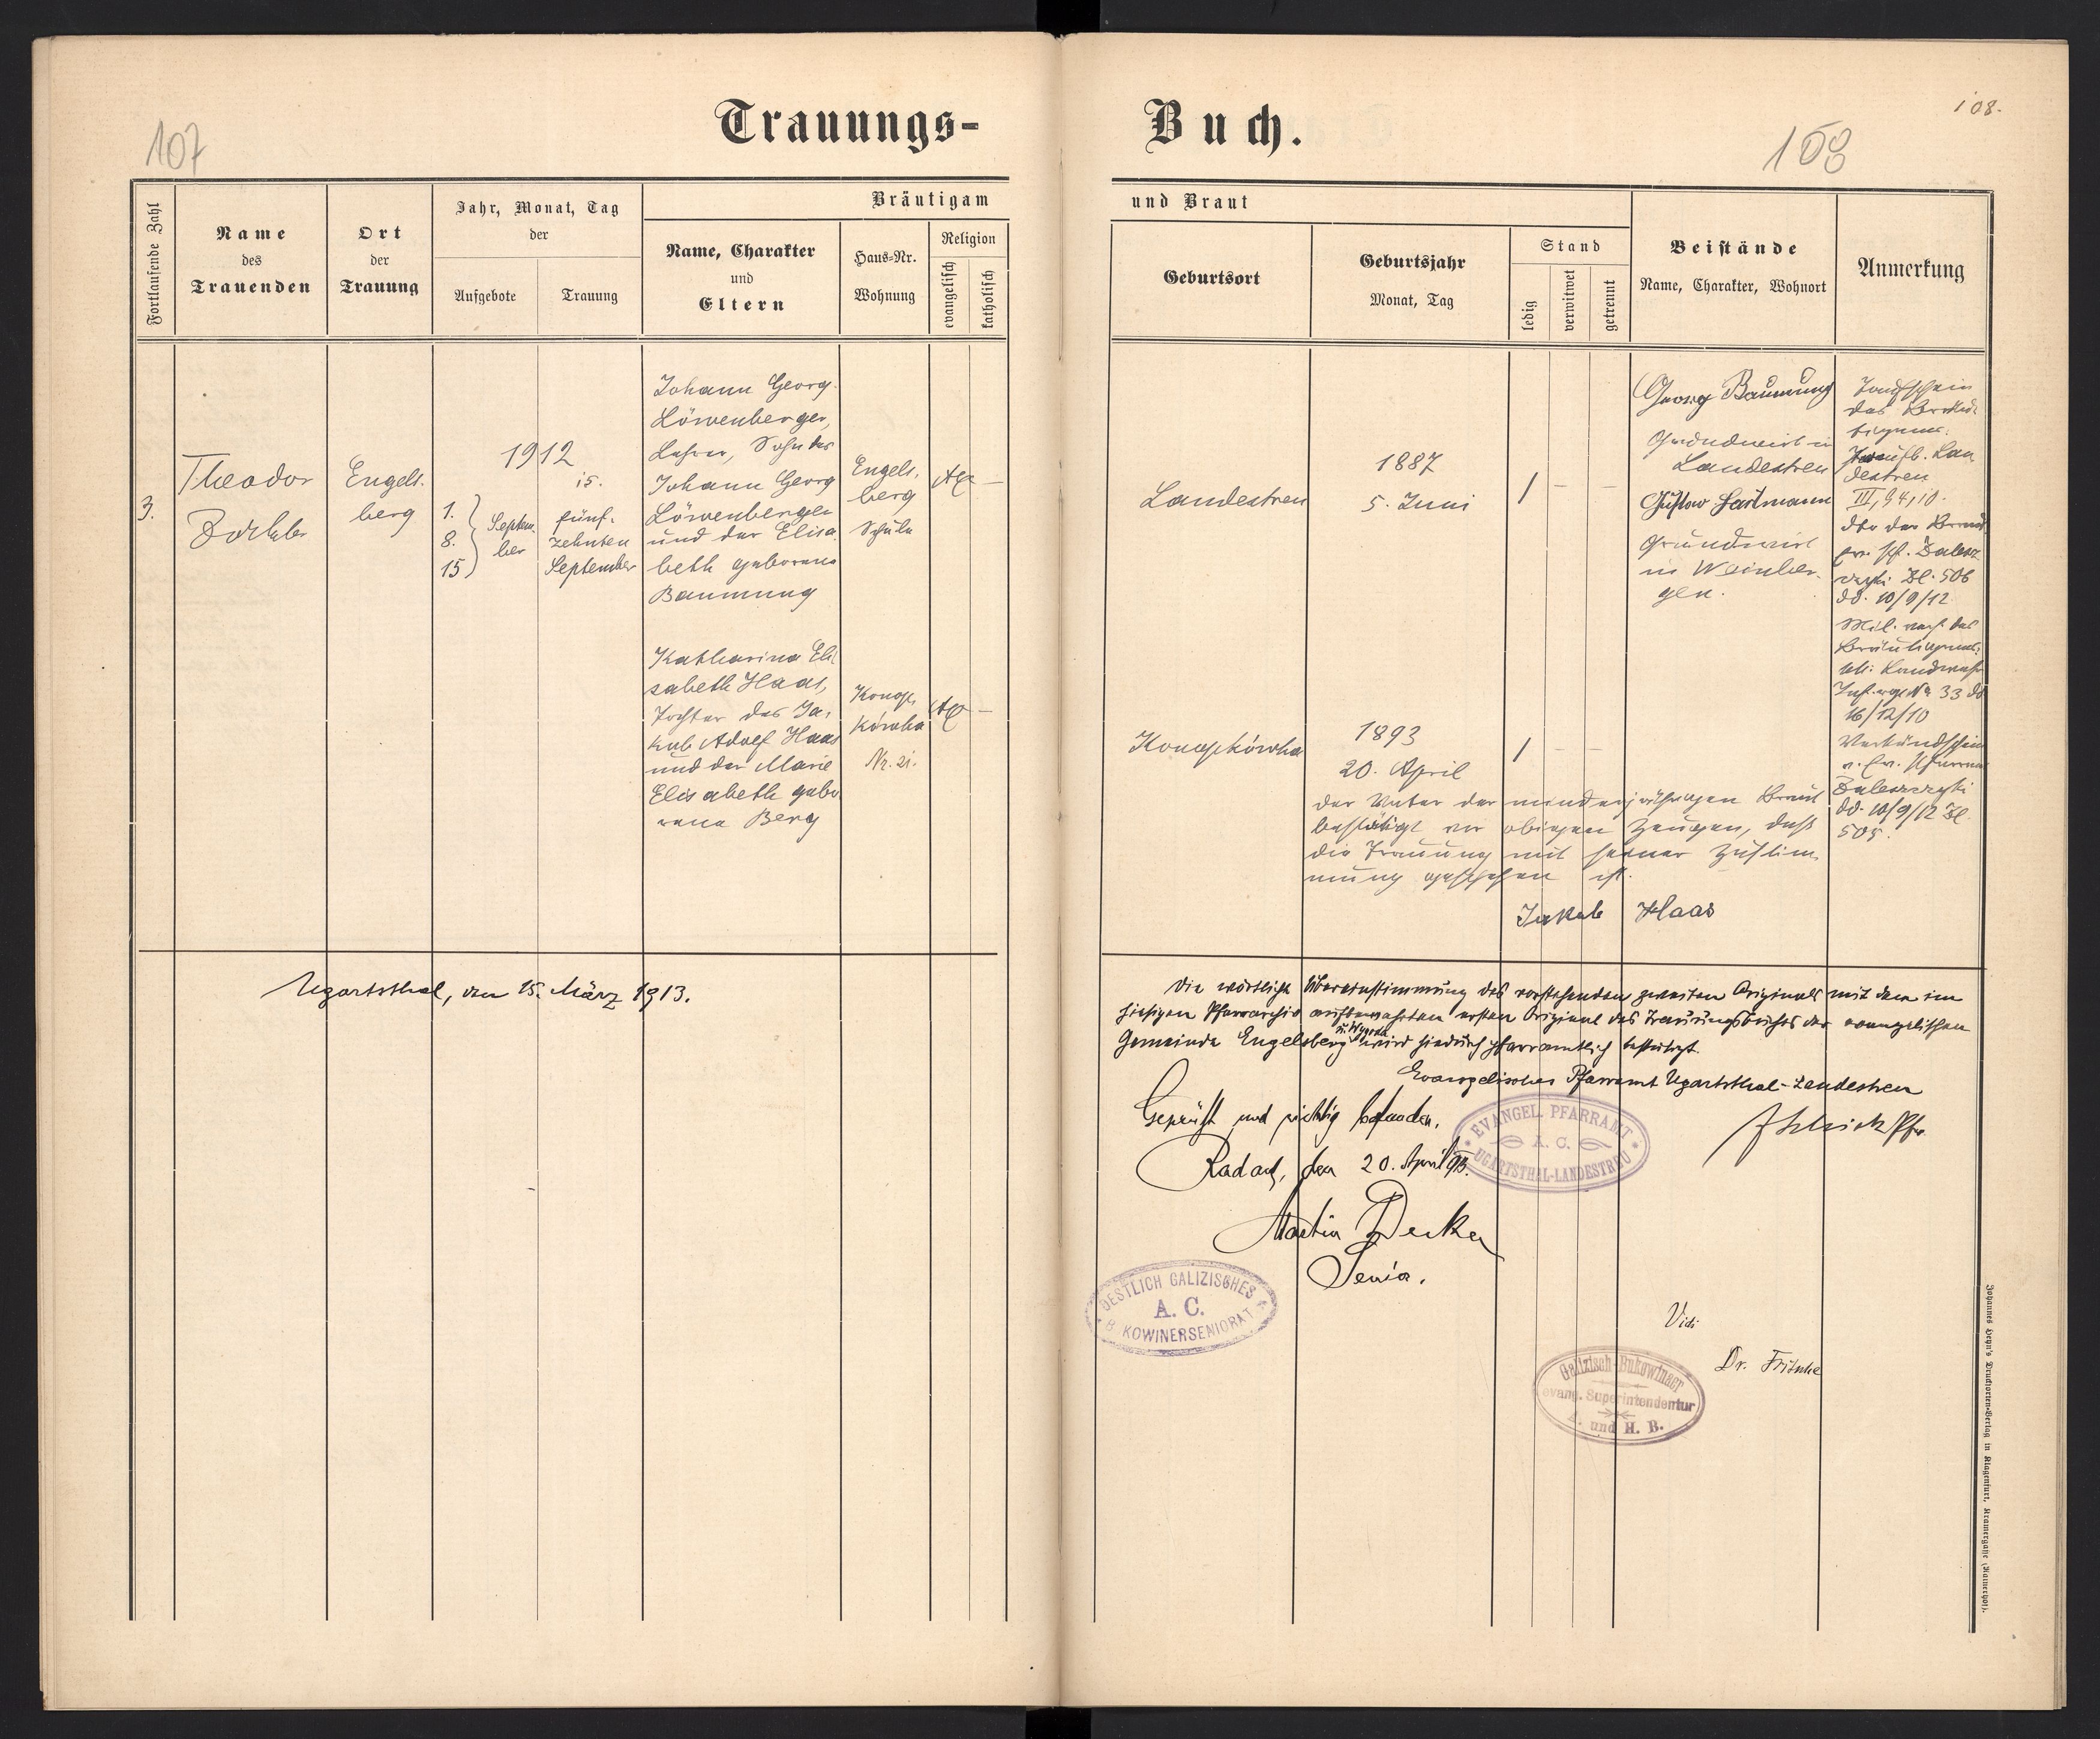 107
Trauungs-
Buch.
108.
108
Fortlaufende Zahl
Name
des
Trauenden
Ort
der
Trauung
Jahr, Monat, Tag
der
Aufgebote
Trauung
Bräutigam
Name, Charakter
und
Eltern
Haus-Nr.
Wohnung
Religion
evangelisch
katholisch
und Braut
Geburtsort
Geburtsjahr
Monat, Tag
Stand
ledig
verwitwet
getrennt
Beistände
Name, Charakter, Wohnort
Anmerkung
3.
Theodor
Engels-
berg
1912
1.
8.
15
Septem-
ber
15.
fünf-
zehnten
September
Johann Georg
Löwenberger,
Lehrer, Sohn des
Johann Georg
Löwenberger
und der Elisa-
beth geborene
Baumung
Engels-
berg
Schule
AC –
Katharina Eli-
sabeth Haas,
Tochter des Ja-
kob Adolf Haas
und der Marie
Elisabeth gebo-
rene Berg
Konop-
kówka
Nr. 21.
AC –
Landestreu
1887
5. Juni
/ – –
Georg Baumung
Grundwirt in
Landestreu
Gustav Hartmann
Grundwirt
in Weinber-
gen.
Taufschein
des Bräu-
tigams:
Taufb. Lan
destreu
III, 94, 10.
dto der Braut
ev. Pf. Zalesz
czyki Zl. 506
dd. 10/9/12
Mil. nach. des
Bräutigams:
kk. Landwehr
Inf. rgt Nr 33 dd
16/12/10
Verkündschein
v. ev. Pfarramt
Zaleszczyki
dd. 10/9/12 Zl.
505.
Konopkówka
1893
20. April
/ – –
Der Vater der minderjährigen Braut
bestätigt vor obigen Zeugen, daß
die Trauung mit seiner Zustim-
mung geschehen ist.
Jakob Haas
Ugartsthal, den 15. März 1913.
Die wörtliche Übereinstimmung des vorstehenden zweiten Originals mit dem im
hiesigen Pfarrarchiv aufbewahrten ersten Original des Trauungsbuches der evangelischen
Gemeinde Engelsberg wird hiedurch pfarramtlich bestätigt.
Evangelisches Pfarramt Ugartsthal-Landestreu
Geprüft und richtig befunden.
EVANGEL. PFARRAMT
A. C.
UGARTSTHAL-LANDESTREU
Pfr.
Radautz, den 20. April 1913.
Martin Decker
Senior.
OESTLICH GALIZISCHES &
A. C.
BUKOWINERSENIORAT
Vidi
Dr. Fritsche
Galizisch-Bukowinaer
evang. Superintendentur
A. und H. B.
Johannes Heyn's Drucksorten-Verlag in Klagenfurt, Kramergasse (Kaiserhof).